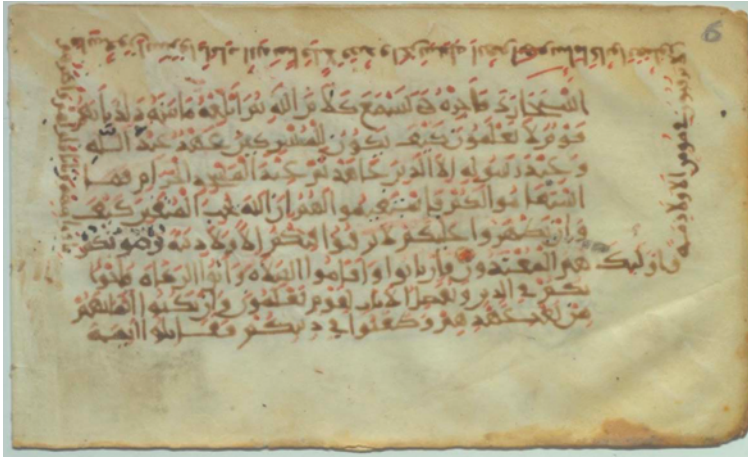 6
استجارك فاجره حتى يسمع كلام الله ثم ابلغه مامنه ذلك بانهم
قوم لا يعلمون كيف يكون للمشركين عهد عند الله
وعند رسوله الا الذين عاهدتم عند المسجد الحرام فما
استقاموا لكم فاستقيموا لهم ان الله يحب المتقين كيف
وان يظهروا عليكم لا يرقبوا فيكم الا ولا ذمة يرضونكم
لا يرقبون في مومن الا ولا ذمة
واوليك هم المعتدون فان تابوا واقاموا الصلاة واتوا الزكاة فاخوا
نكم في الدين ونفصل الايات لقوم يعلمون وان نكثوا ايمانهم
من بعد عهدهم وطعنوا في دينكم فقاتلوا ايمة